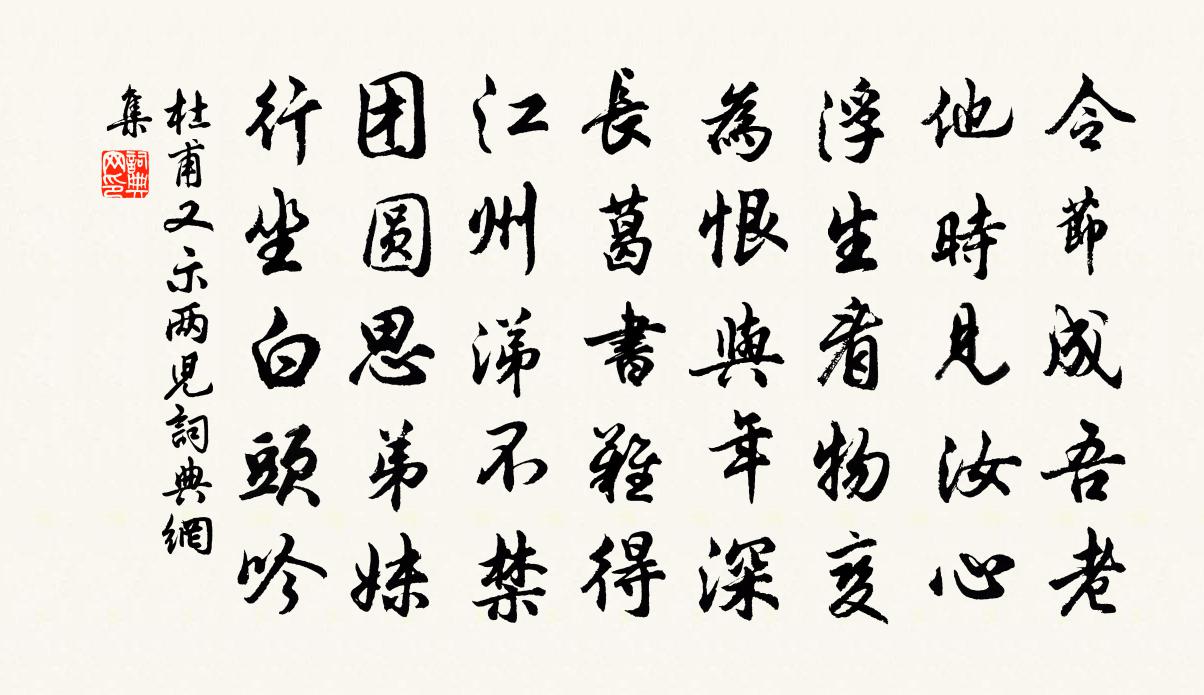 令節成吾老
他時見汝心
浮生看物变
為恨與年深
長葛書難得
江州涕不禁
团圆思弟妹
行坐白頭吟
杜甫又示两児詞典網
集
詞典
网印